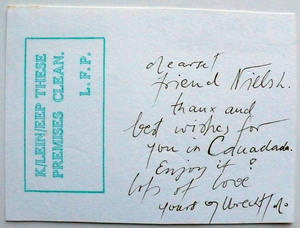 K/LEIN/EEP THESE
PREMISES CLEAN.
L.F.P.
dearest
friend Niels.
thanx and
best wishes for
you in Canadada.
Enjoy it!
lots of love
yours